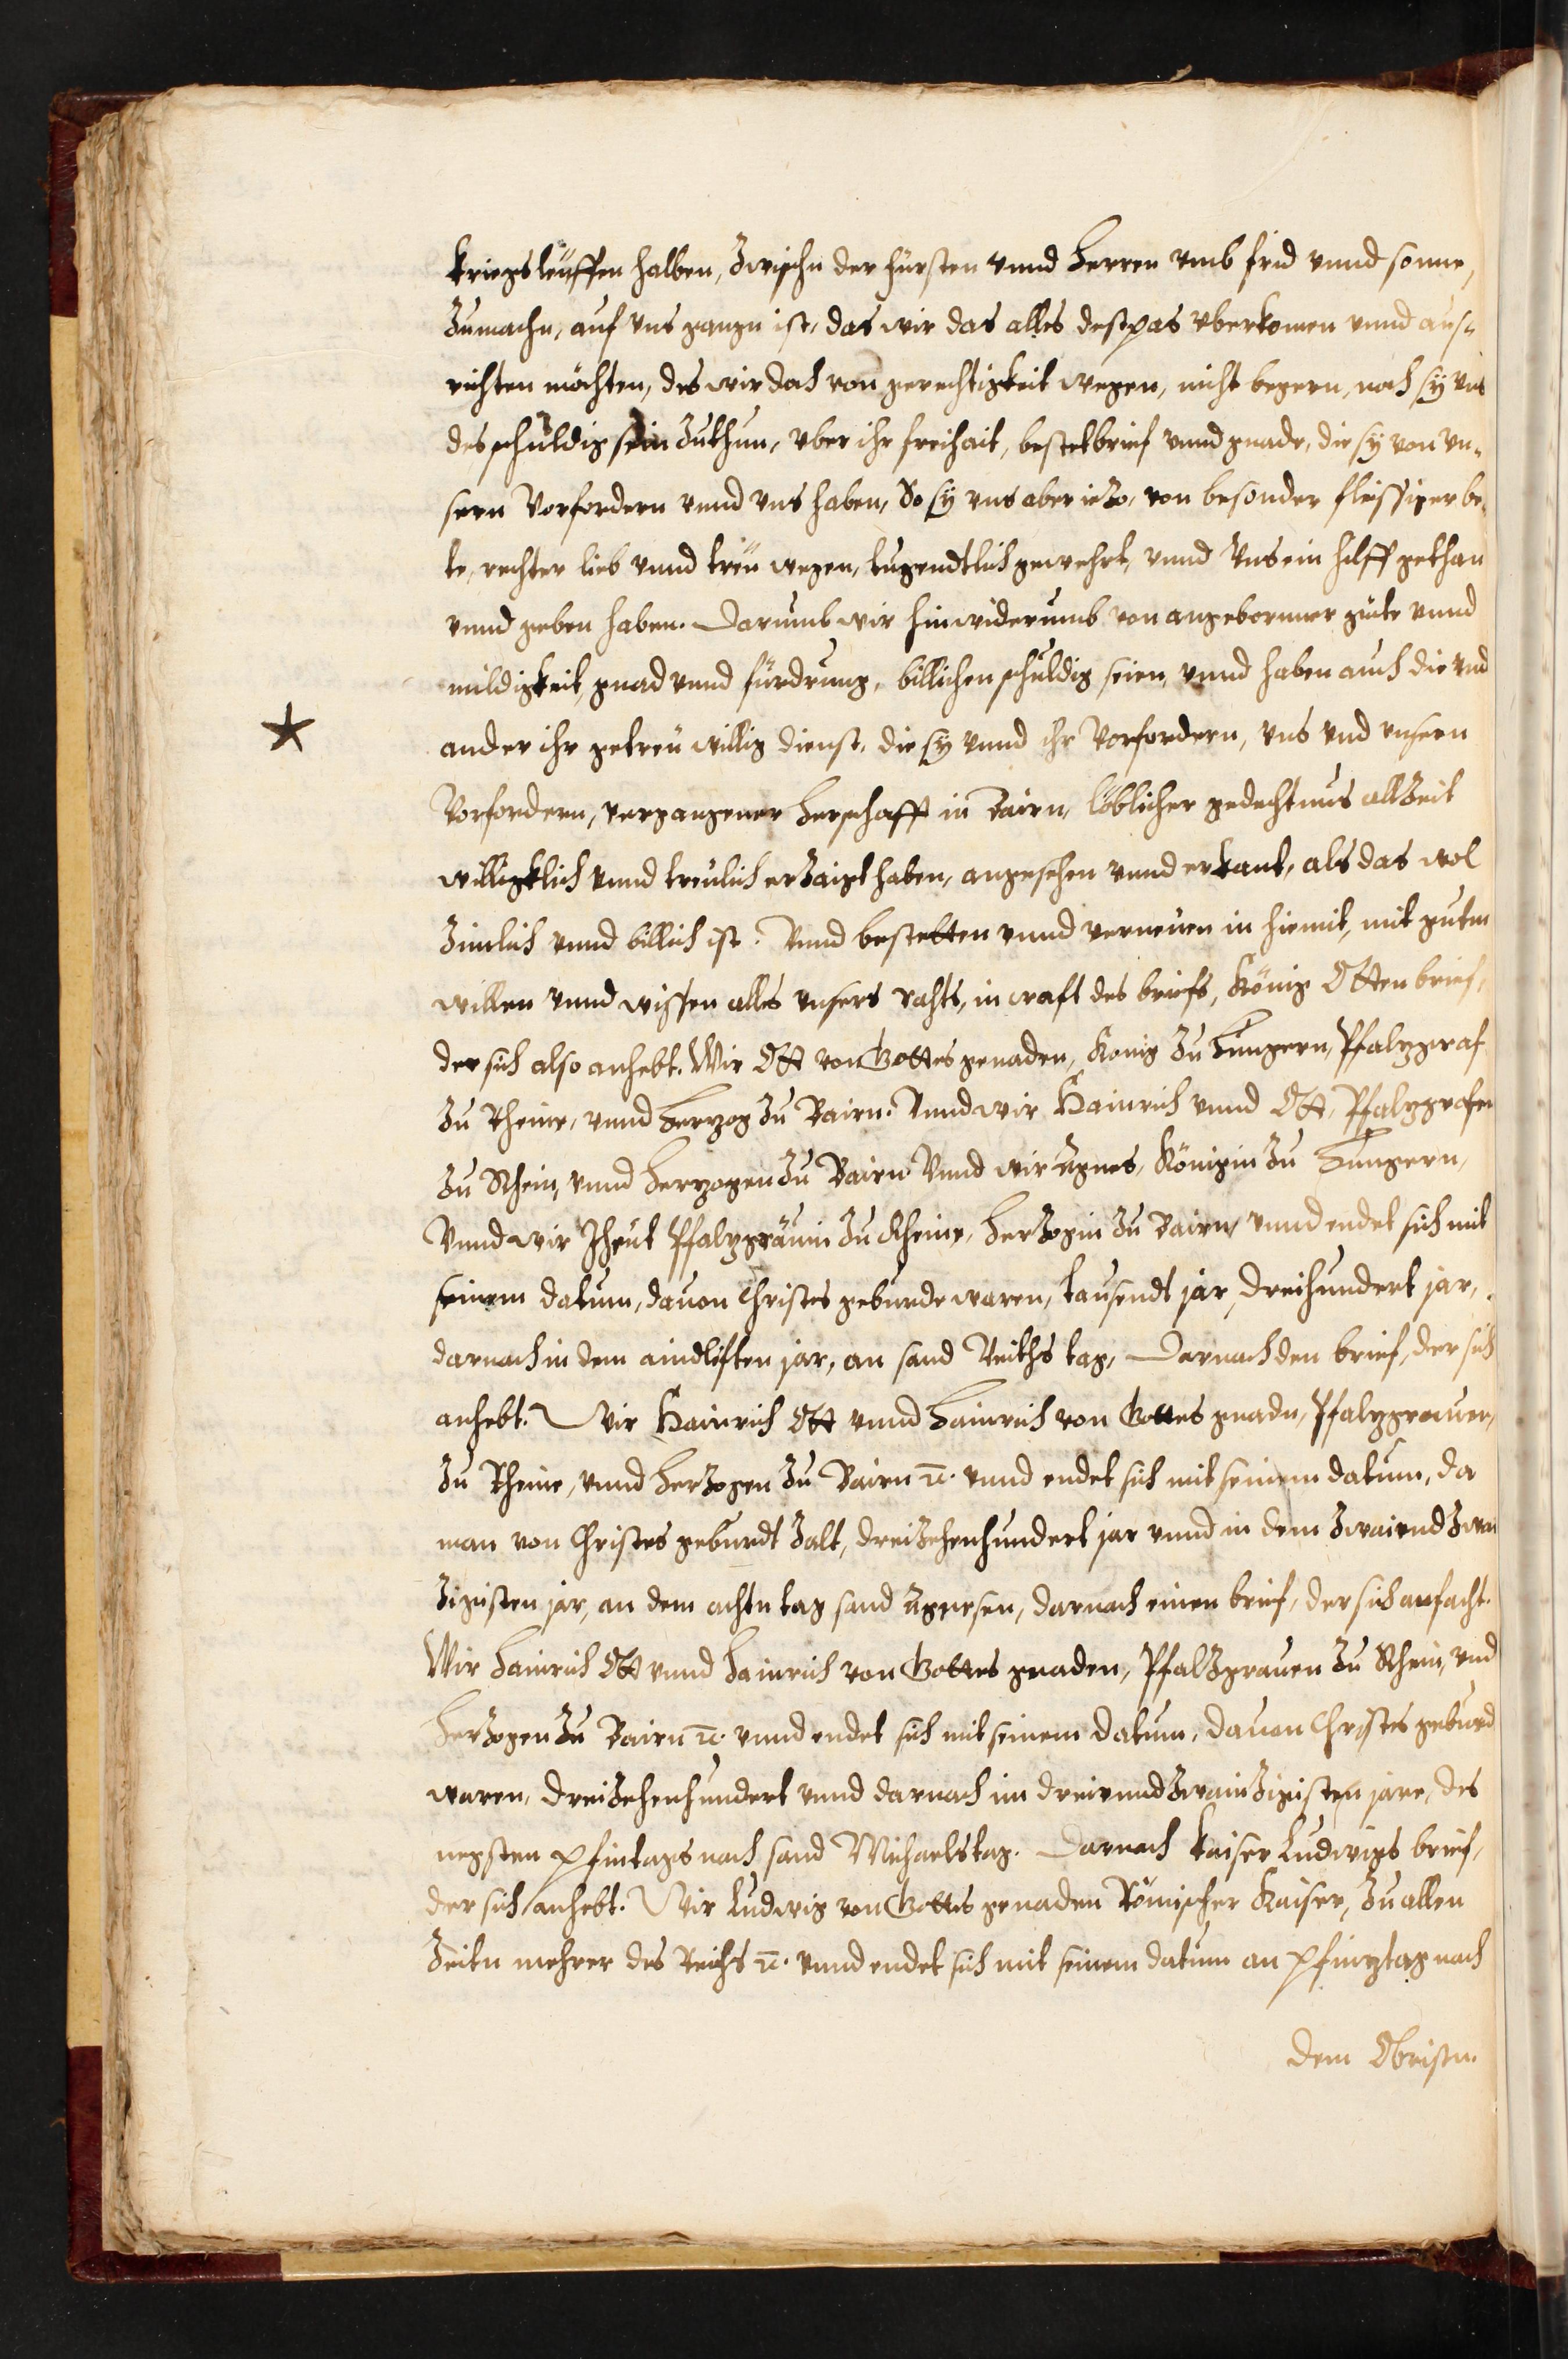 kriegsleuffen halben, zwischn der fürsten vnnd Herren vmb frid vnnd sonne,
zumachn, auf vns gangn ist, das wir das alles destpas vberkomen vnnd aus-
richten möchten, des wir doch von gerechtigkeit wegen, nicht begern, noch sy vns
des schuldig sein zuthun, vber ihr freihait, bestetbrief vnnd gnade, die sy von vn-
sern Vorfordern vnnd vns haben, So sy vns aber iezo, von besonder fleissiger be-
te, rechter lieb vnnd treü wegen, tugendtlich gewehrt, vnnd Vns ein hilff gethan
vnnd geben haben. Darumb wir hinwiderumb von angebornner güte vnnd
mildigkeit, gnad vnnd fürdrung, billichen schuldig seien, vnnd haben auch die vnd
ander ihr getreü willig dienst, die sy vnnd ihr Vorfordern, vns vnd vnsern
Vorfordern, vergangener Herschafft in Bairn, löblicher gedechtnus allzeit
willigklich vnnd treulich erzaigt haben, angesehen vnnd erkant, als das wol
zimlich vnnd billich ist. Vnnd bestetten vnnd verneuen in hiemit, mit gutm
willen vnnd wissen alles vnsers rahts, in craft des briefs, König Otten brief,
der sich also anhebt. Wir Ott von Gottes genaden, Konig zu Hungern, Pfalzgraf
zu Rheine, vnnd Herzog zu Bairn. Vnnd wir Hainrich vnnd Ott, Pfalzgrafen
zu Rhein, vnnd Herzogen zu Bairn Vnnd wir Agnes, Königin zu Hungern,
Vnnd wir Jheut Pfalzgräuin zu Rheine, Herzogin zu Bairn, vnnd endet sich mit
seinem datum, dauon Christes geburde waren, tausendt jar, dreihundert jar,
darnach in dem aindliften jar, an sand Veiths tag, Darnach den brief, der sich
anhebt. Wir Hainrich Ott vnnd Hainrich von Gottes gnadn, Pfalzgrauen,
zu Rheine, vnnd Herzogen zu Bairn ꝛc. vnnd endet sich mit seinem datum, da
man von Christes geburdt zalt, dreizehenhundert jar vnnd in dem zwaivnd zwai
zigisten jar, an dem achtn tag sand Agnesen, darnach einen brief, der sich anfacht.
Wir Hainrich Ott vnnd Hainrich von Gottes gnaden, Pfalzgrauen zu Rhein, vnd
Herzogen zu Bairn ꝛc. vnnd endet sich mit seinem datum, dauon Christes geburd
waren, dreizehenhundert vnnd darnach im dreivnnd zwainzigisten jare, des
negsten pfintags nach sand Michaelstag. Darnach kaiser Ludwigs brief,
der sich anhebt. Wir Ludwig von Gottes genaden Römischer Kaiser, zu allen
zeitn mehrer des Reichs ꝛc. vnnd endet sich mit seinem datum an pfinztag nach
dem Obristn.